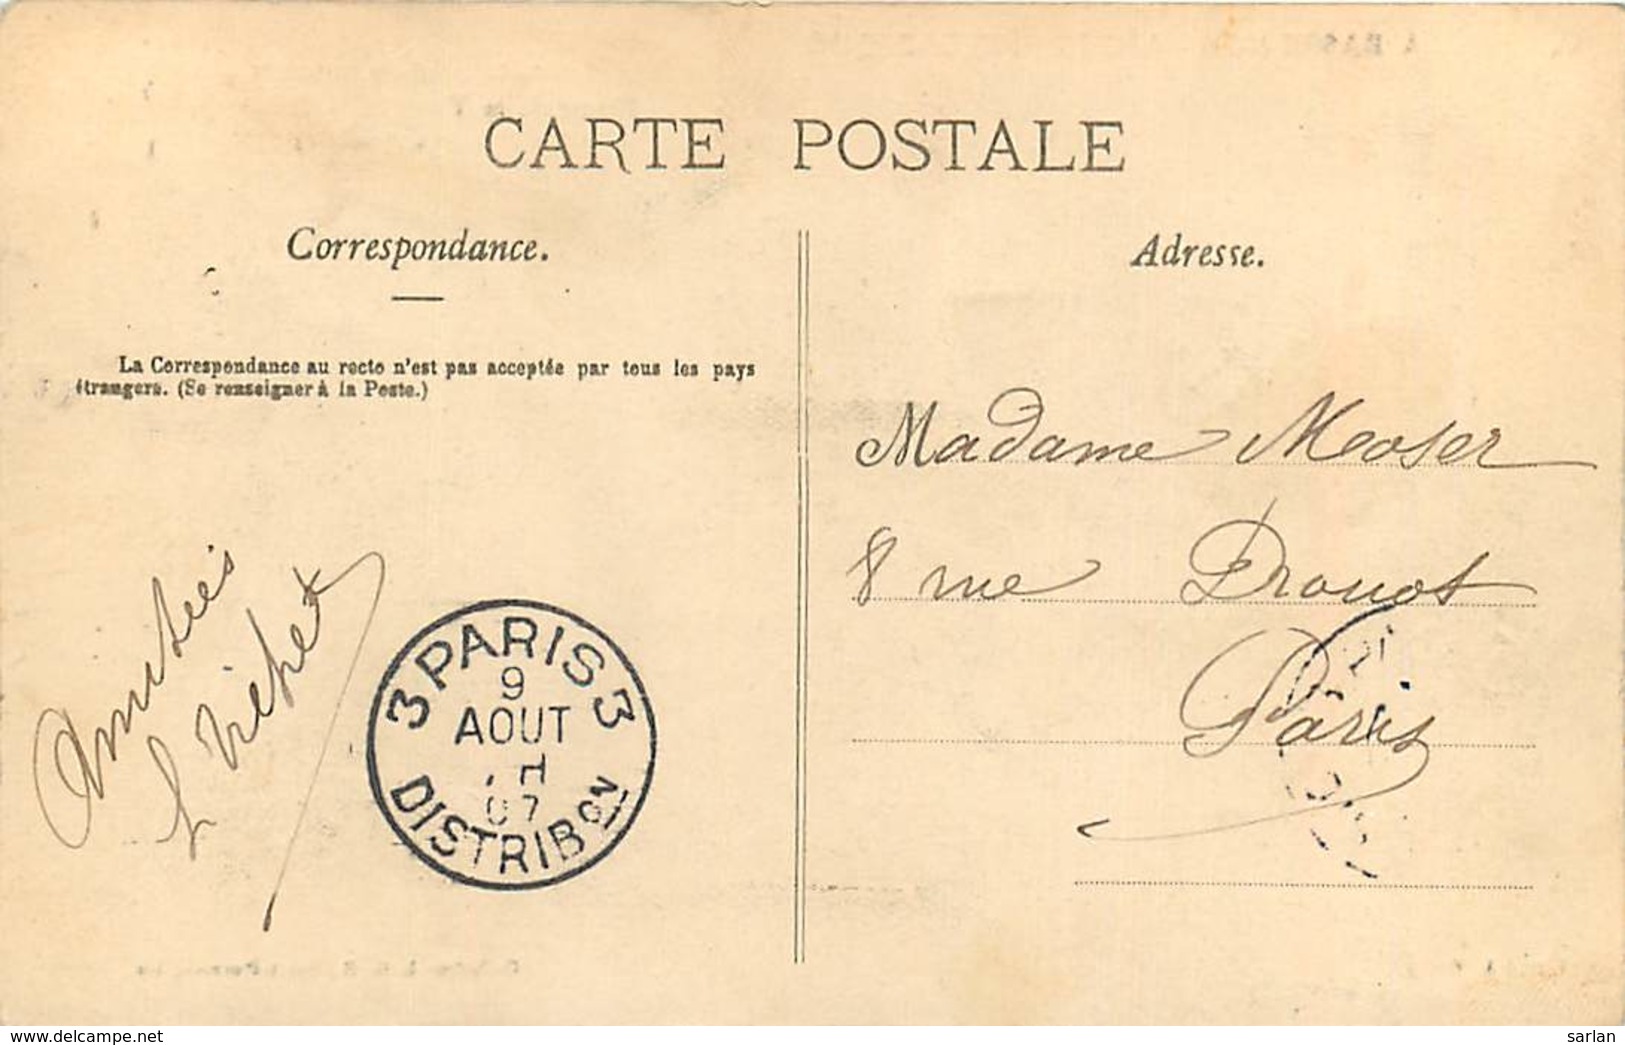 CARTE POSTALE
Correspondance.
La Correspondance au recto n'est pas acceptée par tous les pays
étrangers. (Se renseigner à la Poste.)
Amitiés
3 PARIS 3
9
AOUT
H
07
DISTRIBON
Adresse.
Madame Moser
8 rue Drouot
Paris
www.delcampe.net
sarlan